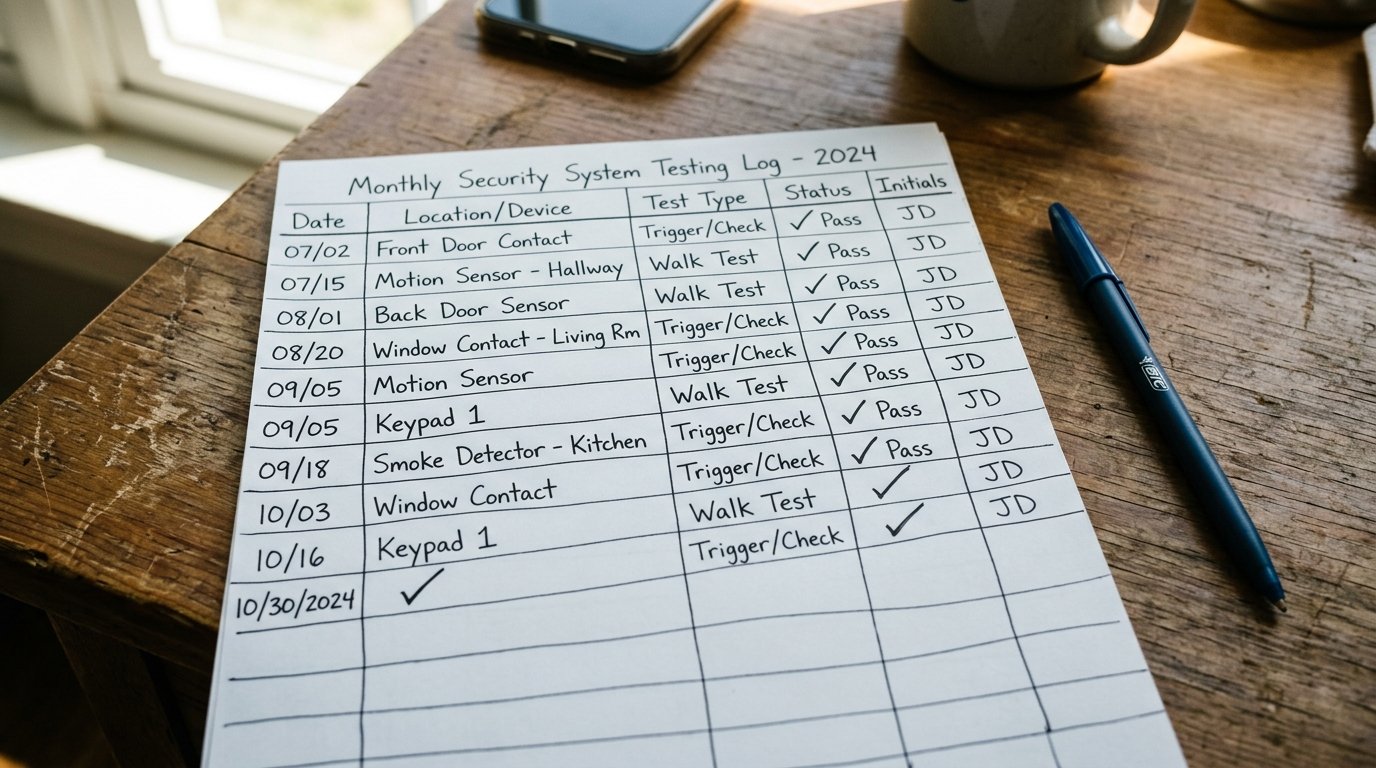 Monthly Security System Testing Log - 2024
Date Location/Device Test Type Status Initials
07/02 Front Door Contact Trigger/Check ✓ Pass JD
07/15 Motion Sensor - Hallway Walk Test ✓ Pass JD
08/01 Back Door Sensor Walk Test ✓ Pass JD
08/20 Window Contact - Living Rm Trigger/Check ✓ Pass JD
09/05 Motion Sensor Trigger/Check ✓ Pass JD
09/05 Keypad 1 Walk Test ✓ Pass JD
09/18 Smoke Detector - Kitchen Trigger/Check ✓ Pass JD
10/03 Window Contact Trigger/Check ✓ Pass JD
10/16 Keypad 1 Walk Test ✓ JD
10/30/2024 ✓ Trigger/Check ✓ JD
BIC